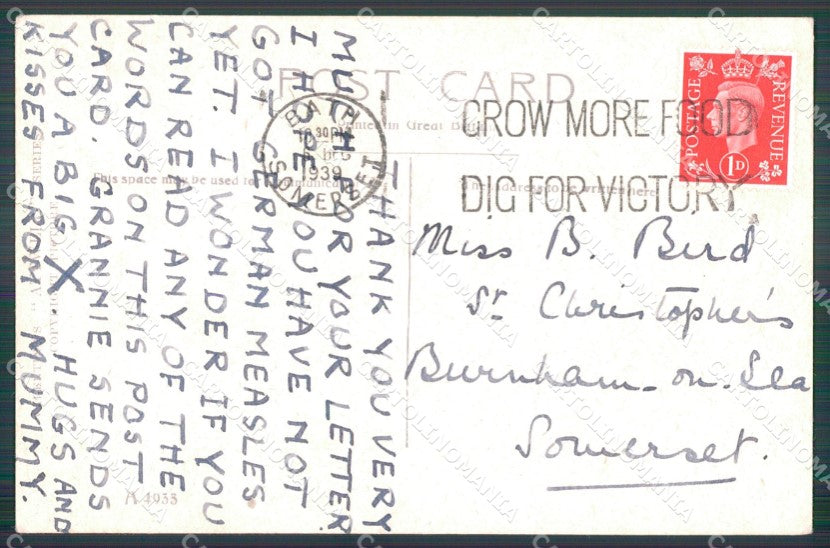 POST CARD
Printed in Great Britain
This space may be used for communication
The address to be written here
BATH
SOMERSET
1939
GROW MORE FOOD
DIG FOR VICTORY
POSTAGE
REVENUE
1D
THANK YOU VERY
MUCH FOR YOUR LETTER
I HOPE YOU HAVE NOT
GOT GERMAN MEASLES
YET. I WONDER IF YOU
CAN READ ANY OF THE
WORDS ON THIS POST
CARD. GRANNIE SENDS
YOU A BIG X. HUGS AND
KISSES FROM MUMMY.
Miss B. Bird
St Christopher's
Burnham-on-Sea
Somerset.
A 4933
CARTOLINOMANIA